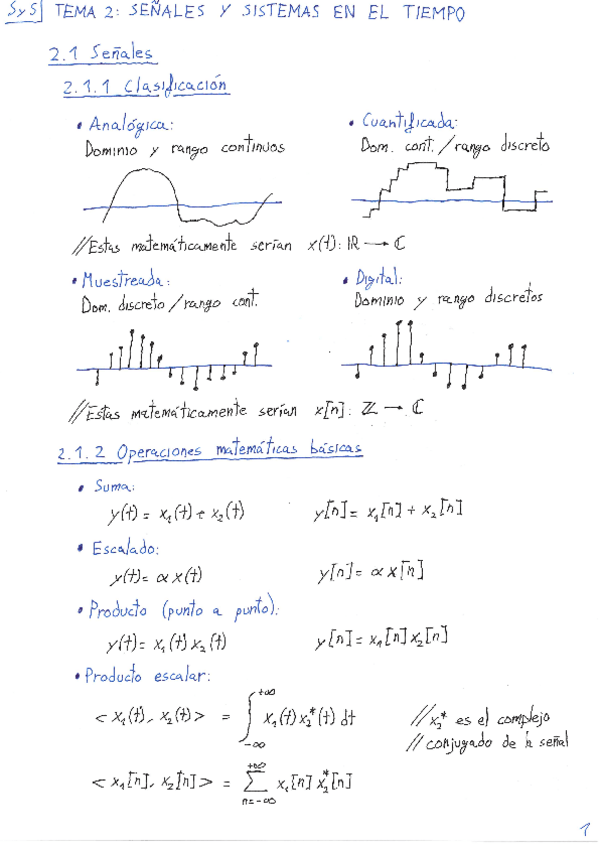 SyS TEMA 2: SEÑALES Y SISTEMAS EN EL TIEMPO
2.1 Señales
2.1.1 Clasificación
• Analógica:
Dominio y rango continuos
• Cuantificada:
Dom. cont. / rango discreto
//Estas matemáticamente serían x(t): ℝ → ℂ
• Muestreada:
Dom. discreto / rango cont.
• Digital:
Dominio y rango discretos
//Estas matemáticamente serían x[n]: ℤ → ℂ
2.1.2 Operaciones matemáticas básicas
• Suma:
y(t) = x₁(t) + x₂(t) y[n] = x₁[n] + x₂[n]
• Escalado:
y(t) = α x(t) y[n] = α x[n]
• Producto (punto a punto):
y(t) = x₁(t) x₂(t) y[n] = x₁[n] x₂[n]
• Producto escalar:
< x₁(t), x₂(t) > = ∫_{-∞}^{+∞} x₁(t) x₂*(t) dt //x₂* es el complejo
//conjugado de la señal
< x₁[n], x₂[n] > = ∑_{n=-∞}^{+∞} x₁[n] x₂*[n]
1